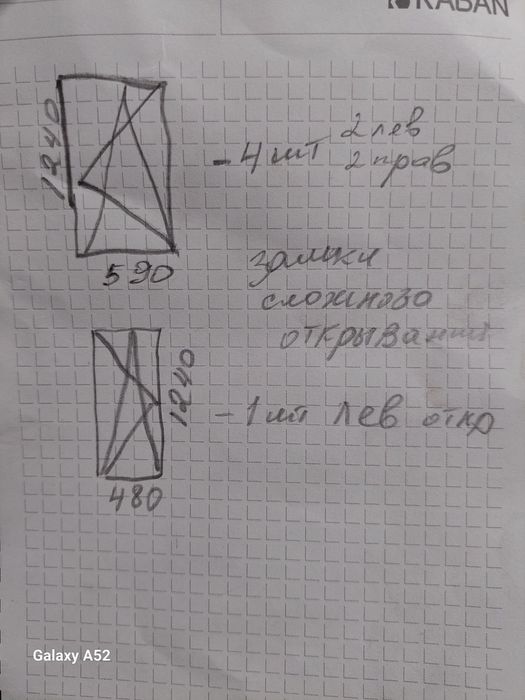 KABAN
1240
- 4 шт 2 лев
2 прав
590
замки
сложново
открывания
1240
- 1 шт лев откр
480
Galaxy A52